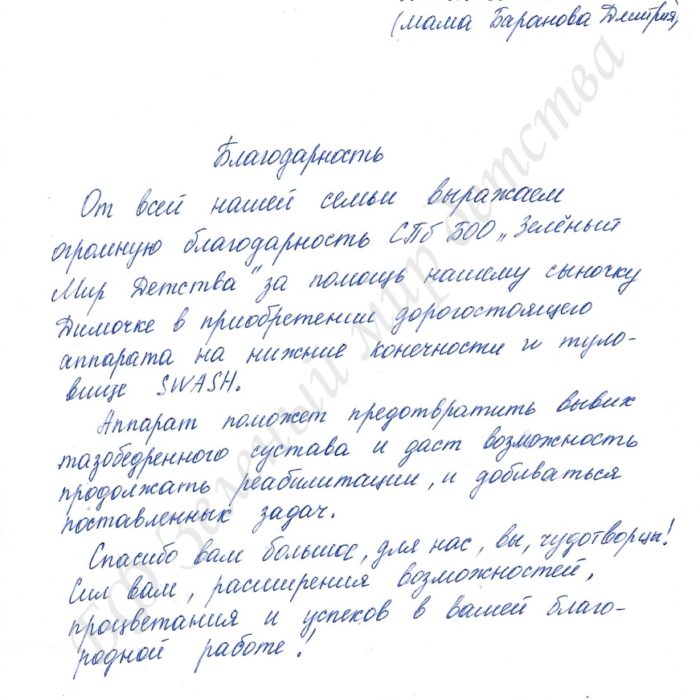 (мама Баранова Дмитрия,
Благодарность
От всей нашей семьи выражаем
огромную благодарность СПб БОО „Зелёный
Мир Детства" за помощь нашему сыночку
Димочке в приобретении дорогостоящего
аппарата на нижние конечности и туло-
вище SWASH.
Аппарат поможет предотвратить вывих
тазобедренного сустава и даст возможность
продолжать реабилитации, и добиваться
поставленных задач.
Спасибо вам большое, для нас, вы, чудотворцы!
Сил вам, расширения возможностей,
процветания и успехов в вашей благо-
родной работе!
БФ Зеленый мир детства